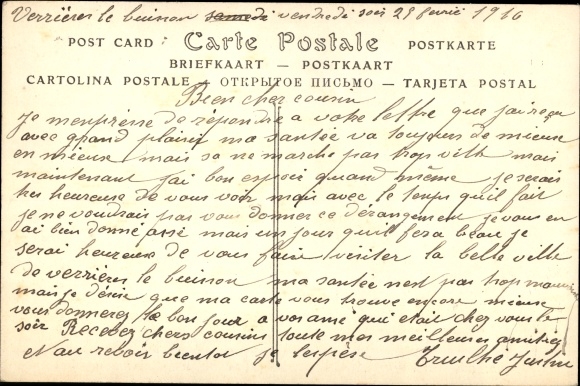 Verrières le buisson samedi vendredi soir 25 fevrié 1916
POST CARD Carte Postale POSTKARTE
BRIEFKAART — POSTKAART
CARTOLINA POSTALE — ОТКРЫТОЕ ПИСЬМО — TARJETA POSTAL
Bien cher cousin
Je m'enpresse de répondre a votre lettre que j'ai reçu
avec grand plaisir ma santée va toujours de mieux
en mieux mais sa ne marche pas trop vitte mais
maintenant j'ai bon espoir quand meme je serais
tres heureuse de vous voir mais avec le temps qu'il fait
je ne voudrais pas vous donner ce dérangement je vous en
ai bien donné assé mais un jour qu'il fera beau je
serai heureuse de vous faire visiter la belle ville
de verrières le buisson ma santée n'est pas trop mauvaise
mais je désire que ma carte vous trouve encore mieux
vous donnerez le bon jour a vos amie qui etait chez vous le
soir Recevez chers cousins toute mes meilleures amitiés
et au revoir bientot je l'espère